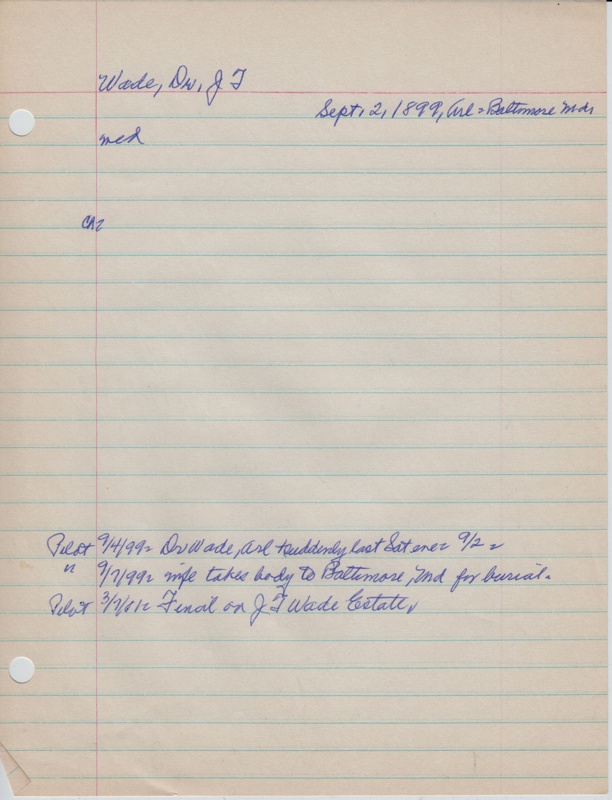 Wade, Dr, J T
Sept, 2, 1899, Arl = Baltimore Md,
med
Pilot 9/4/99 = Dr Wade, Arl suddenly last Sat eve = 9/2 =
" 9/7/99 = wife takes body to Baltimore, Md for burial =
Pilot 3/7/01 = Final on J T Wade Estate,